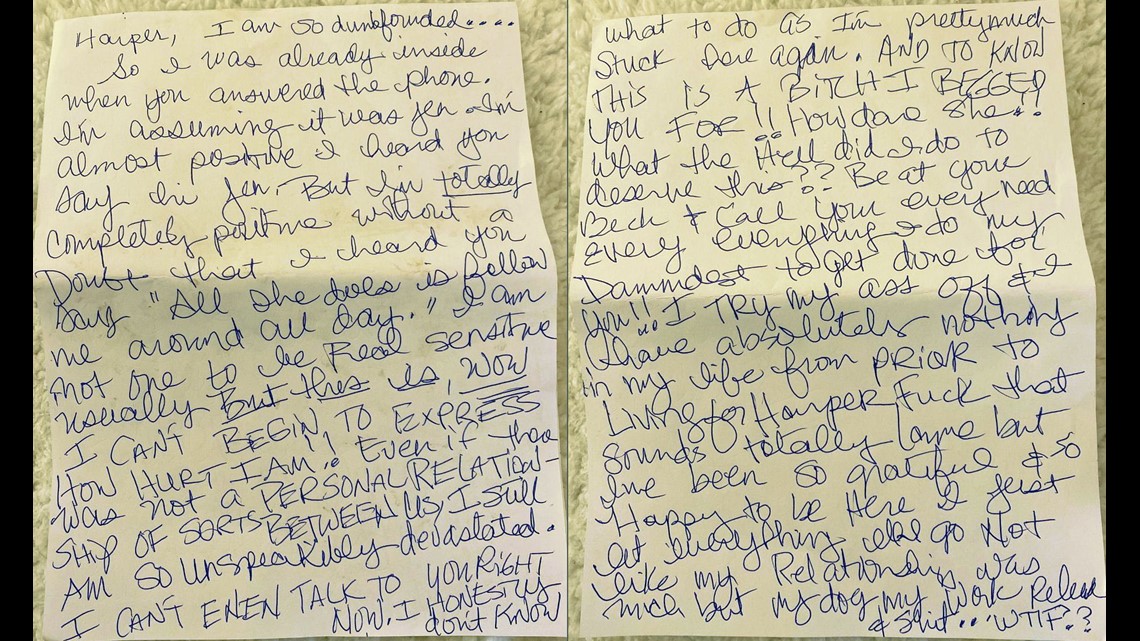 Harper, I am so dumbfounded....
So I was already inside
when you answered the phone.
I'm assuming it was Jen. I'm
almost positive I heard you
say hi Jen. But I'm totally
completely positive without a
Doubt that I heard you
say "All she does is follow
me around all day." I am
not one to be Real sensitive
usually But this is, WOW
I CAN'T BEGIN TO EXPRESS
HOW HURT I AM!! Even if there
was not a PERSONAL RELATION-
SHIP OF SORTS BETWEEN US, I still
AM so unspeakibly devastated.
I CAN'T EVEN TALK TO YOU RIGHT
NOW. I HONESTLY
don't KNOW
what to do as I'm pretty much
Stuck here again. AND TO KNOW
THIS IS A BITCH I BEGGED
YOU FOR!! How dare she!!
What the Hell did I do to
deserve this?? Be at your
Beck & Call your every need
every everything I do my
Dammdest to get done for
you!!.. I TRY my ass off & I
have absolutely nothing
in my life from PRIOR TO
Living for Harper Fuck that
sounds totally lame but
I've been so grateful & so
Happy to be Here I just
let everything else go Not
like my Relationship was
much but my dog my work Release
& shit.. WTF.??